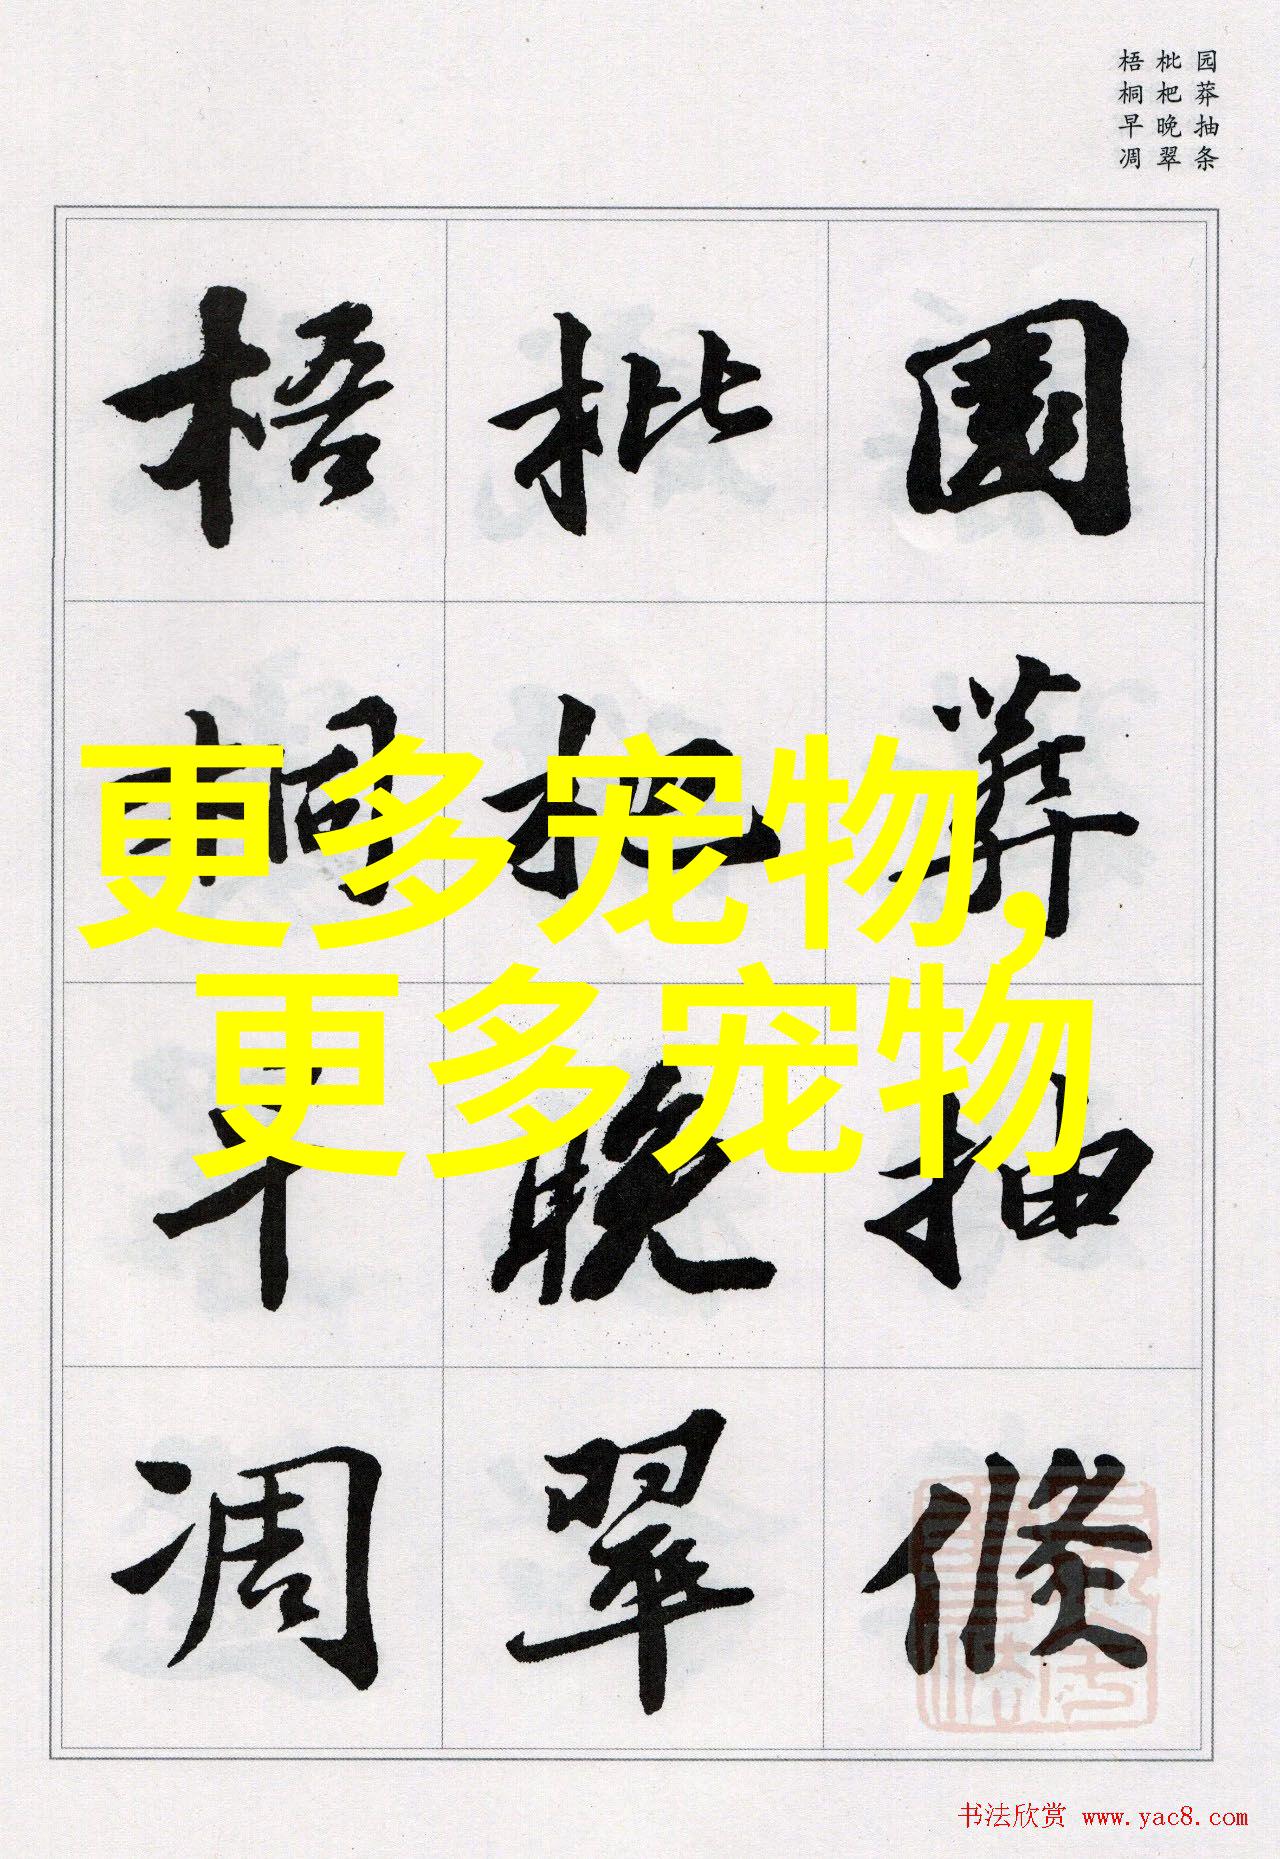 园莽抽条
枇杷晚翠
梧桐早凋
園莽抽條
枇杷晚翠
梧桐早凋
更多宠物,
更多宠物
书法欣赏 www.yac8.com